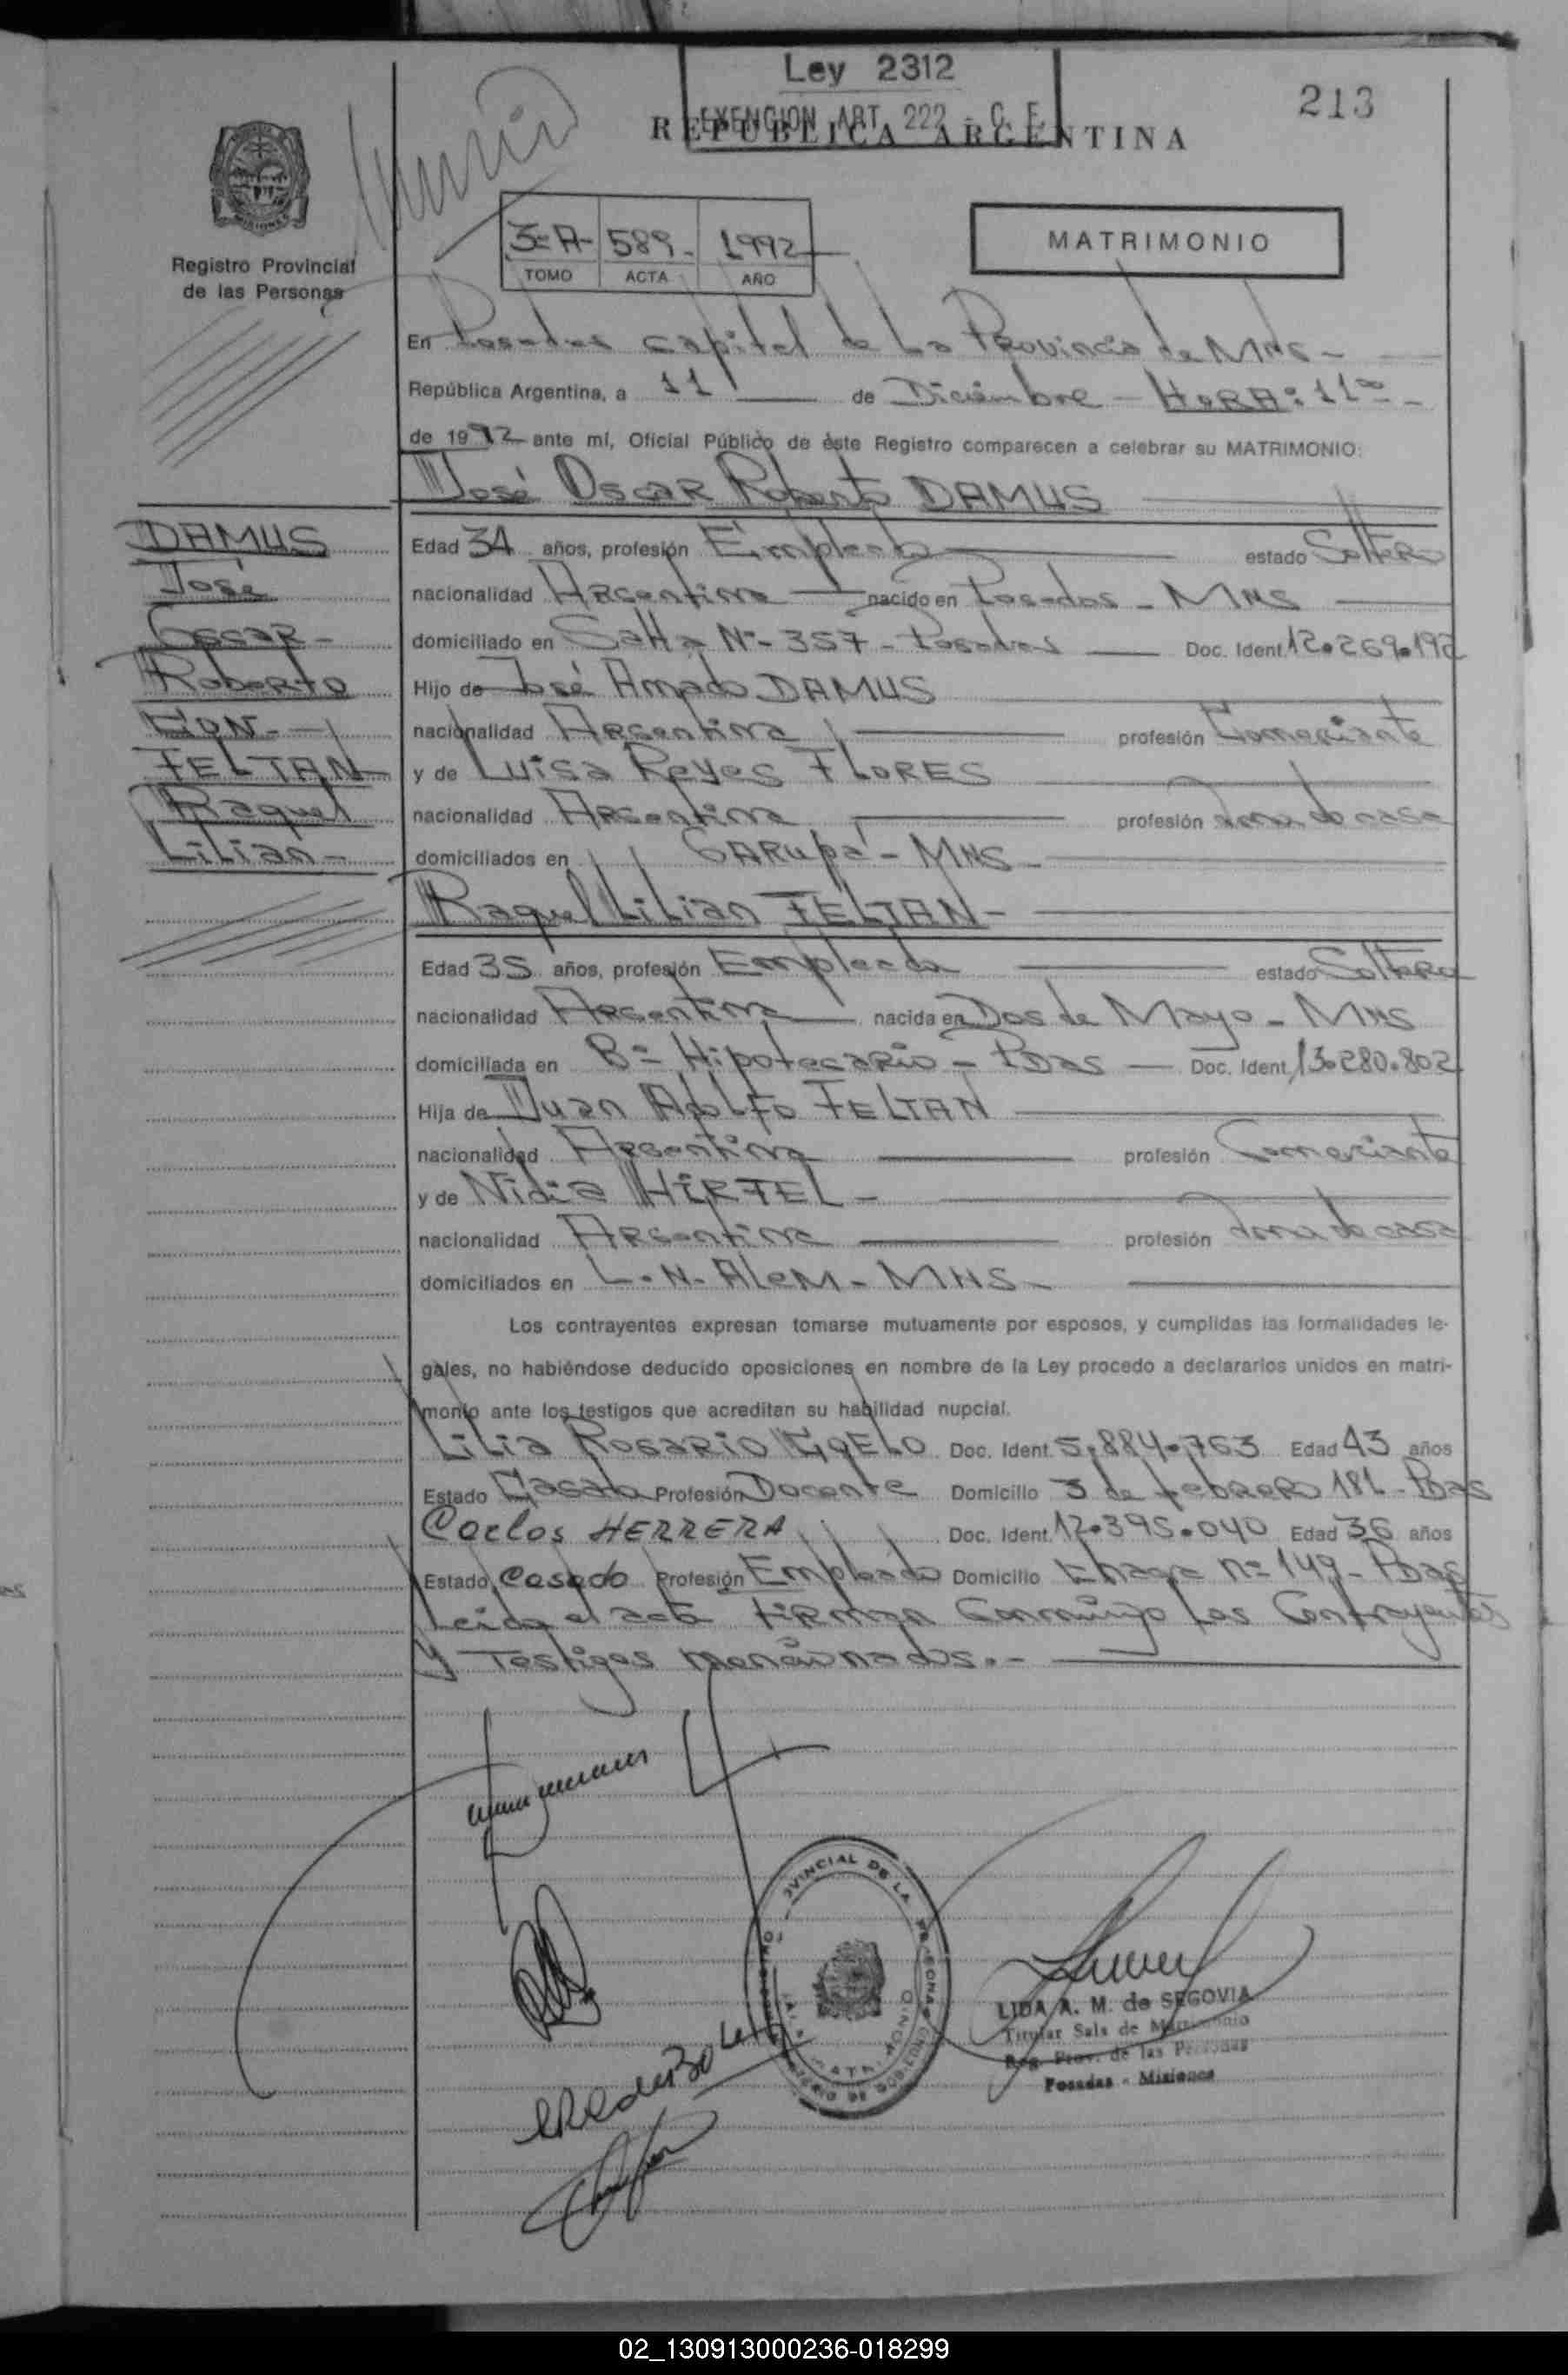 Ley 2312
EXENCION ART. 222 - C. F.
213
REPUBLICA ARGENTINA
Registro Provincial
de las Personas
3=A- 589- 1992
TOMO ACTA AÑO
MATRIMONIO
En Posadas capital de La Provincia de MNS-
República Argentina, a 11 de Diciembre - HORA: 11
de 1992 ante mí, Oficial Público de éste Registro comparecen a celebrar su MATRIMONIO:
José Oscar Roberto DAMUS
DAMUS
José
Oscar-
Roberto
CON-
FELTAN
Raquel
Lilian-
Edad 34 años, profesión Empleado estado Soltero
nacionalidad Argentina nacido en Posadas - MNS
domiciliado en Salta Nº- 357 - Posadas Doc. Ident. 12.269.192
Hijo de José Amado DAMUS
nacionalidad Argentina profesión Comerciante
y de Luisa Reyes FLORES
nacionalidad Argentina profesión Ama de casa
domiciliados en GARUPá - MNS-
Raquel Lilian FELTAN-
Edad 35 años, profesión Empleada estado Soltera
nacionalidad Argentina nacida en Dos de Mayo - MNS
domiciliada en Bº Hipotecario - Pdas - Doc. Ident. 13.280.802
Hija de Juan Adolfo FELTAN
nacionalidad Argentina profesión Comerciante
y de Nidia HIRTEL-
nacionalidad Argentina profesión Ama de casa
domiciliados en L.N. Alem - MNS-
Los contrayentes expresan tomarse mutuamente por esposos, y cumplidas las formalidades le-
gales, no habiéndose deducido oposiciones en nombre de la Ley procedo a declararlos unidos en matri-
monio ante los testigos que acreditan su habilidad nupcial.
Lilia Rosario Doc. Ident. 5.884.763 Edad 43 años
Estado Casada Profesión Docente Domicilio 3 de febrero 181 - Pdas
Carlos HERRERA Doc. Ident. 12.395.040 Edad 36 años
Estado Casado Profesión Empleado Domicilio Nº 149 - Pdas
Leida el acta firman Conmigo Los Contrayentes
y Testigos mencionados.-
LIDA A. M. de SEGOVIA
Titular Sala de Matrimonio
Reg. Prov. de las Personas
Posadas - Misiones
02_130913000236-018299